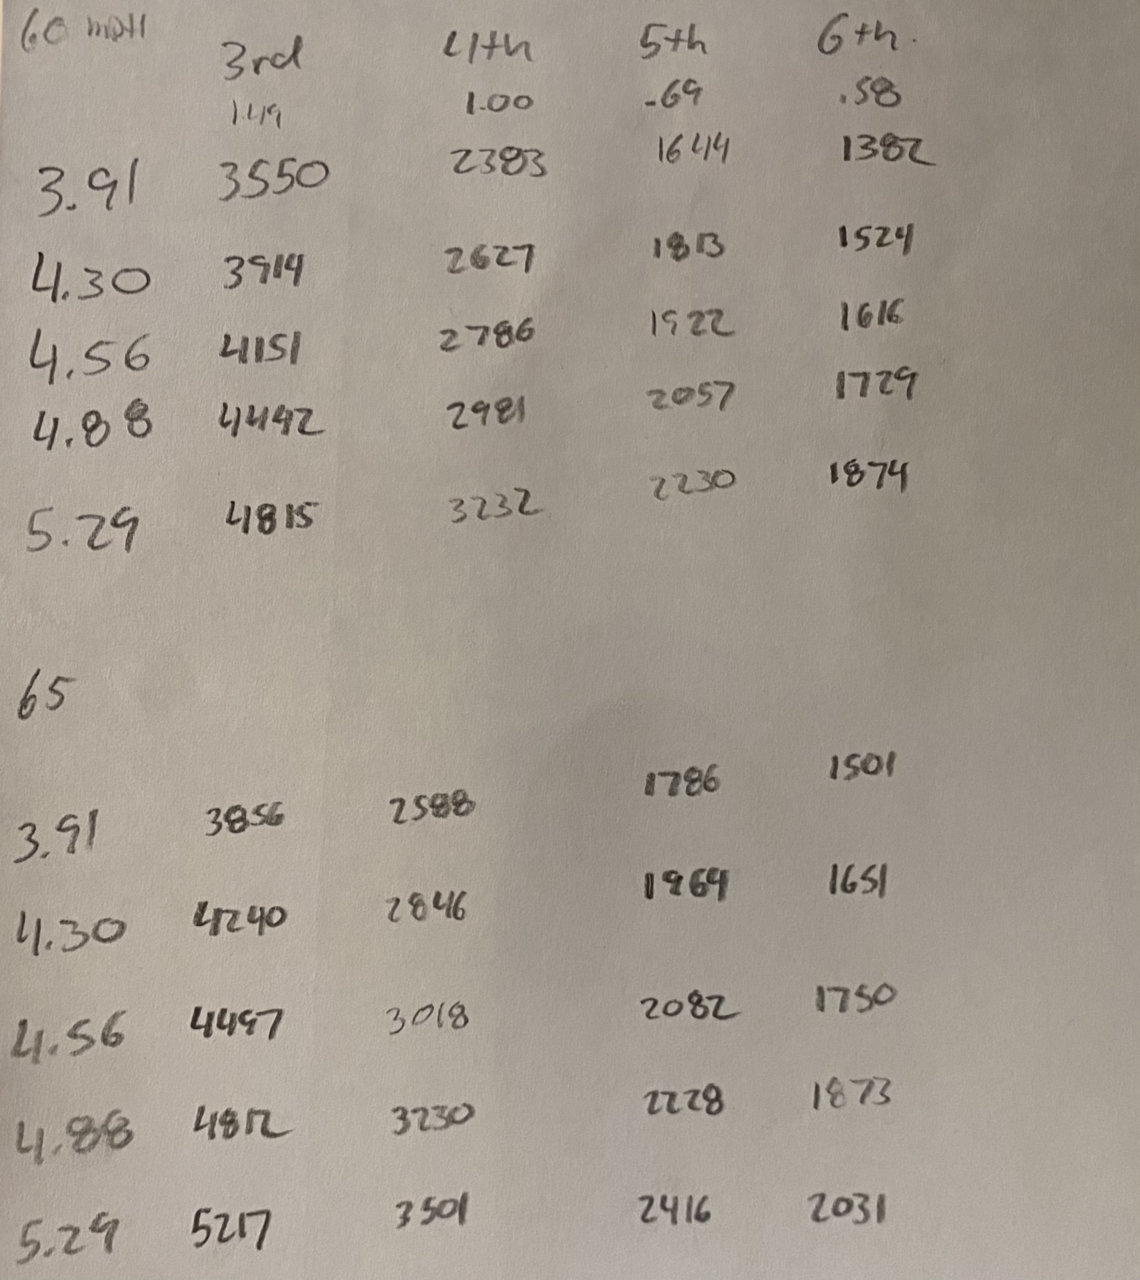 60 MPH
3rd 4th 5th 6th.
1.49 1.00 .69 .58
3.91 3550 2383 1644 1382
4.30 3914 2627 1813 1524
4.56 4151 2786 1922 1616
4.88 4442 2981 2057 1729
5.29 4815 3232 2230 1874
65
3.91 3856 2588 1786 1501
4.30 4240 2846 1964 1651
4.56 4497 3018 2082 1750
4.88 4812 3230 2228 1873
5.29 5217 3501 2416 2031